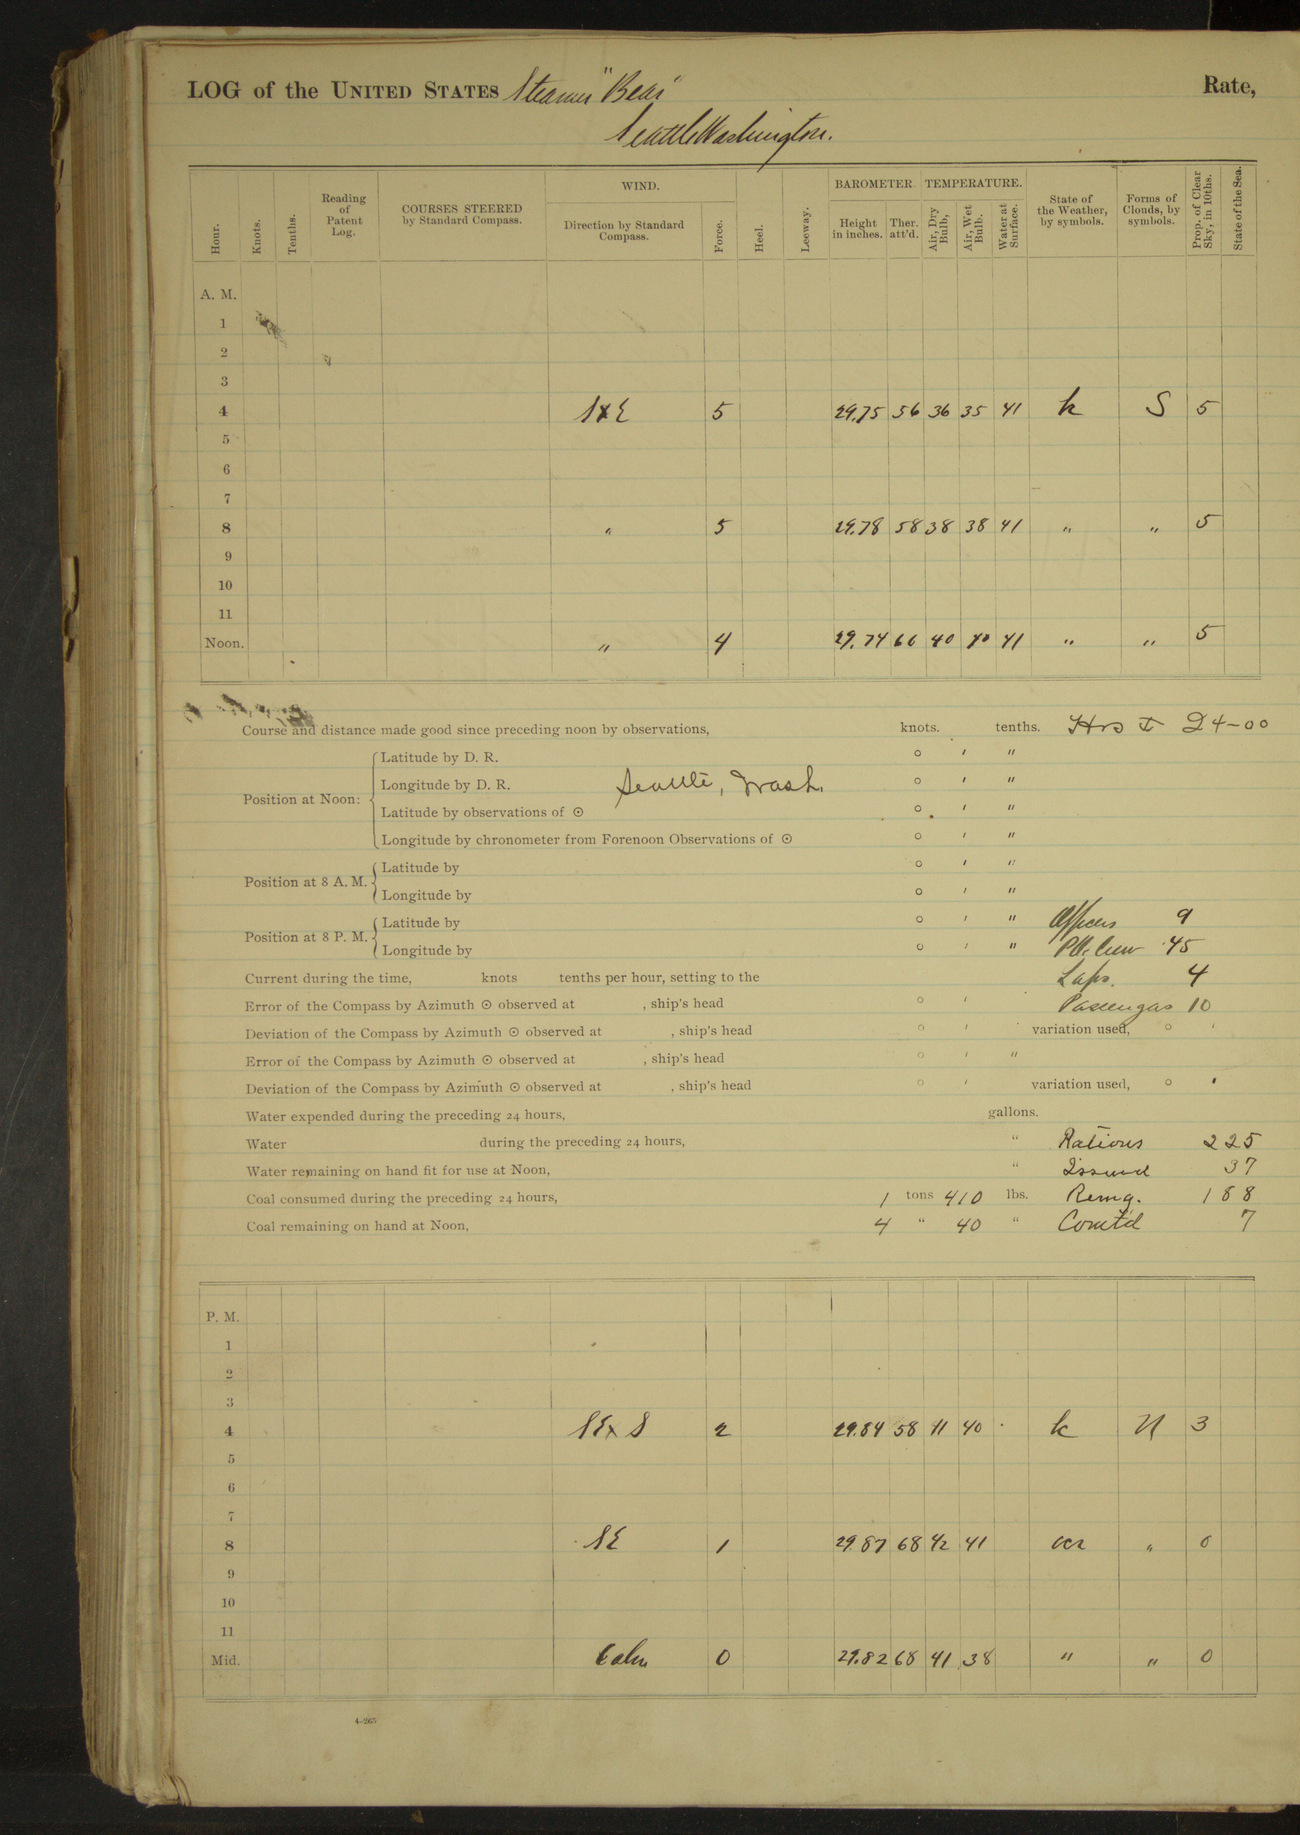 LOG of the UNITED STATES Steamer "Bear" Rate,
Seattle Washington.
Hour. Knots. Tenths. Reading of Patent Log. COURSES STEERED by Standard Compass. WIND. Direction by Standard Compass. Force. Heel. Leeway. BAROMETER. Height in inches. Ther. att'd. TEMPERATURE. Air, Dry Bulb, Air, Wet Bulb. Water at Surface. State of the Weather, by symbols. Forms of Clouds, by symbols. Prop. of Clear Sky, in 10ths. State of the Sea.
A. M.
1
2
3
4 SxE 5 29.75 56 36 35 41 k S 5
5
6
7
8 " 5 29.78 58 38 38 41 " " 5
9
10
11
Noon. " 4 29.74 66 40 40 41 " " 5
Course and distance made good since preceding noon by observations, knots. tenths. Hrs I 24-00
Position at Noon:
Latitude by D. R. ° ' "
Longitude by D. R. Seattle, Wash. ° ' "
Latitude by observations of ☉ ° ' "
Longitude by chronometer from Forenoon Observations of ☉ ° ' "
Position at 8 A. M.
Latitude by ° ' "
Longitude by ° ' "
Position at 8 P. M.
Latitude by ° ' " Officers 9
Longitude by ° ' " Crew 45
Current during the time, knots tenths per hour, setting to the 4
Error of the Compass by Azimuth ☉ observed at , ship's head ° ' Passengers 10
Deviation of the Compass by Azimuth ☉ observed at , ship's head ° ' variation used, ° '
Error of the Compass by Azimuth ☉ observed at , ship's head ° ' "
Deviation of the Compass by Azimuth ☉ observed at , ship's head ° ' variation used, ° '
Water expended during the preceding 24 hours, gallons.
Water during the preceding 24 hours, " Rations 225
Water remaining on hand fit for use at Noon, " Issued 37
Coal consumed during the preceding 24 hours, 1 tons 410 lbs. Remg. 188
Coal remaining on hand at Noon, 4 " 40 " Comt'd 7
P. M.
1
2
3
4 SExS 2 29.84 58 41 40 k N 3
5
6
7
8 SE 1 29.87 68 42 41 " 0
9
10
11
Mid. Calm 0 29.82 68 41 38 " " 0
4-265